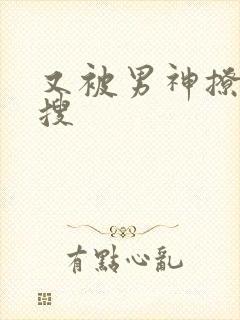 又被男神撩
搜
有點心亂